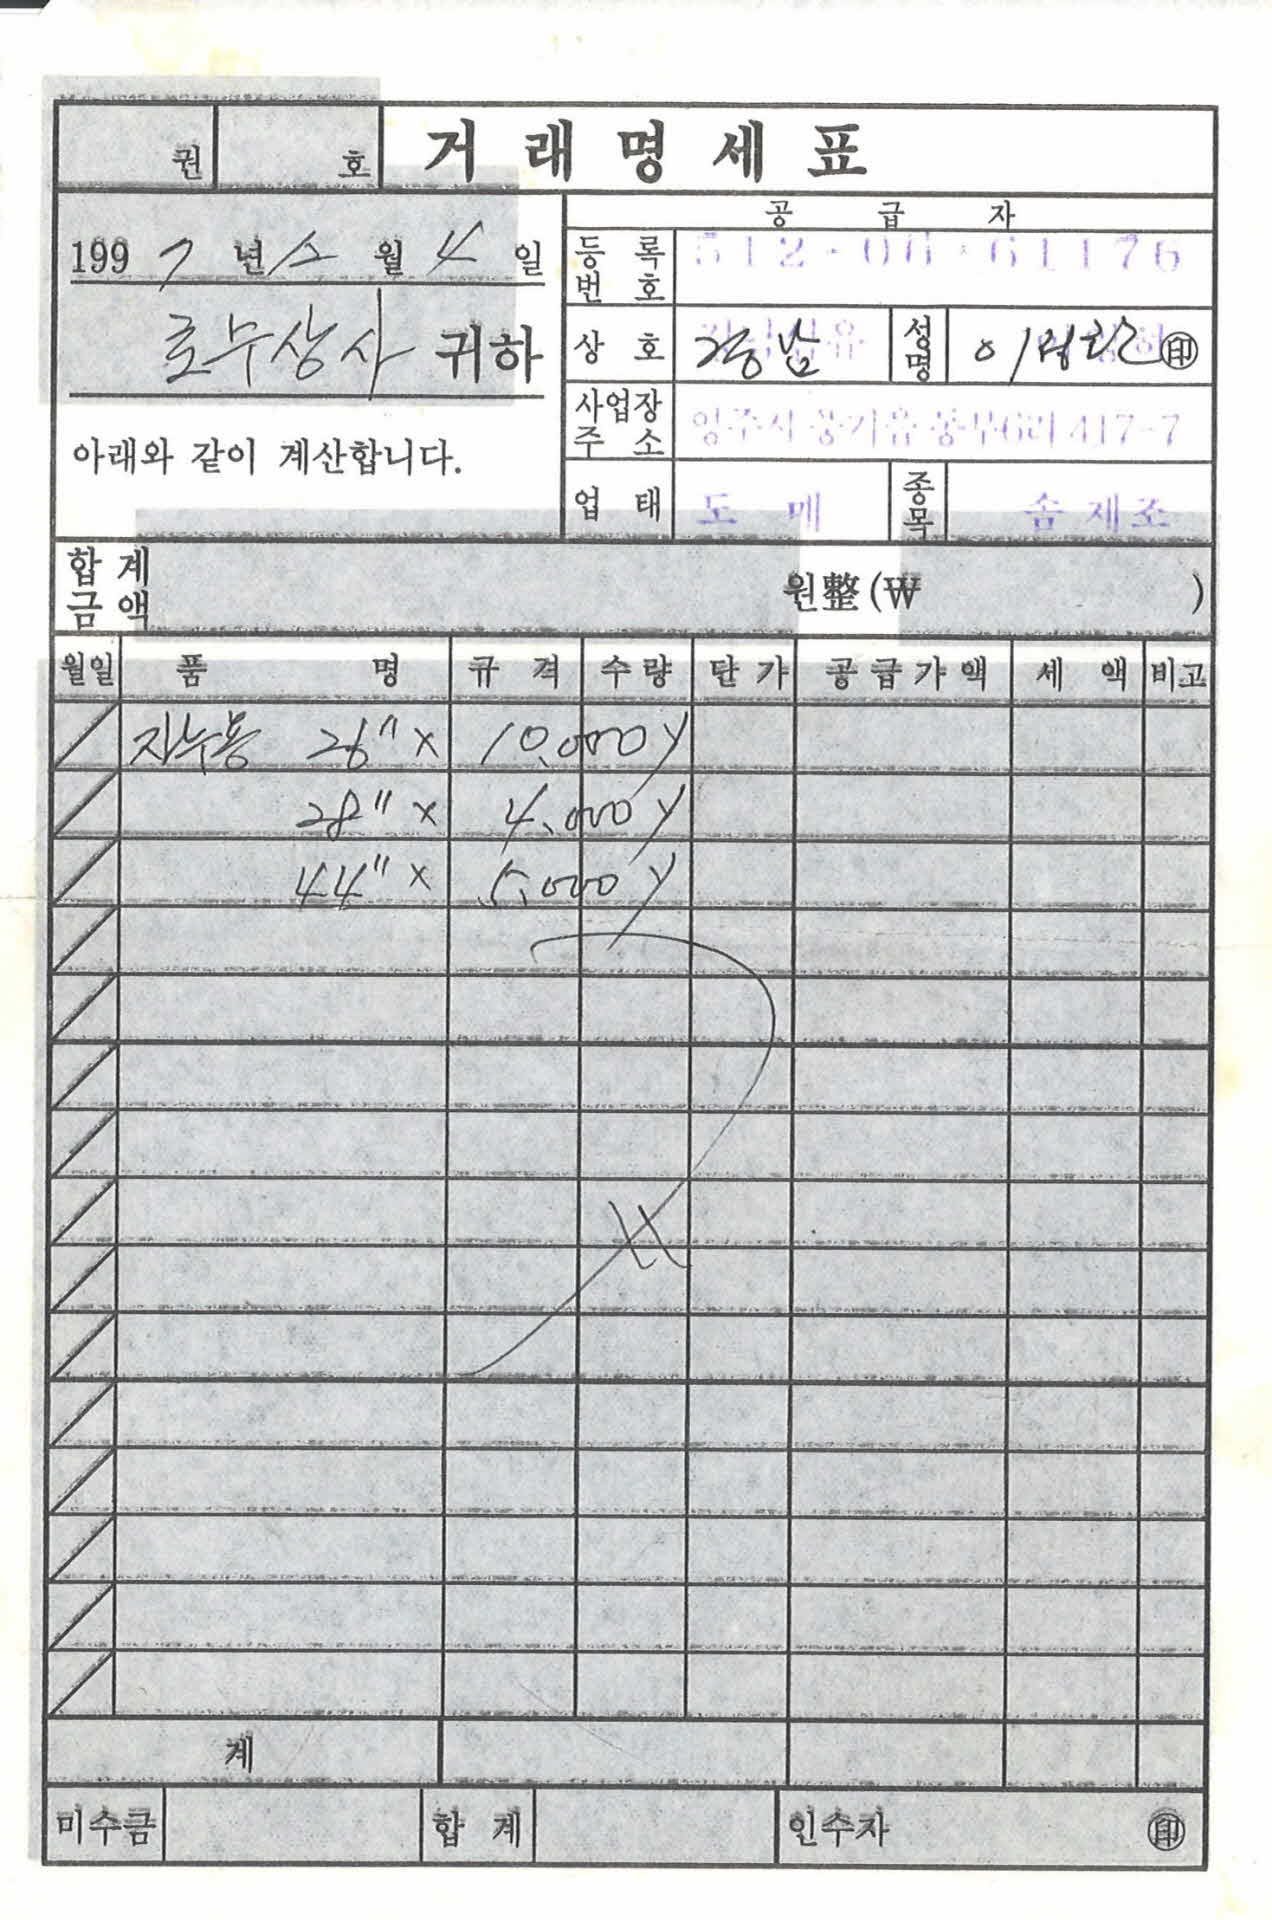 권 호 거래명세표
공급자
1997년 5월 4일
등록번호 512-08-61176
로수상사 귀하
상호 경남 성명 印
사업장주소 영주시 풍기읍 동부6리 417-7
아래와 같이 계산합니다.
업태 도매 종목 솜제조
합계금액 원整(₩ )
월일 품명 규격 수량 단가 공급가액 세액 비고
지누용 26" x 10,000 y
28" x 4,000 y
44" x 5,000 y
계
미수금 합계 인수자 印